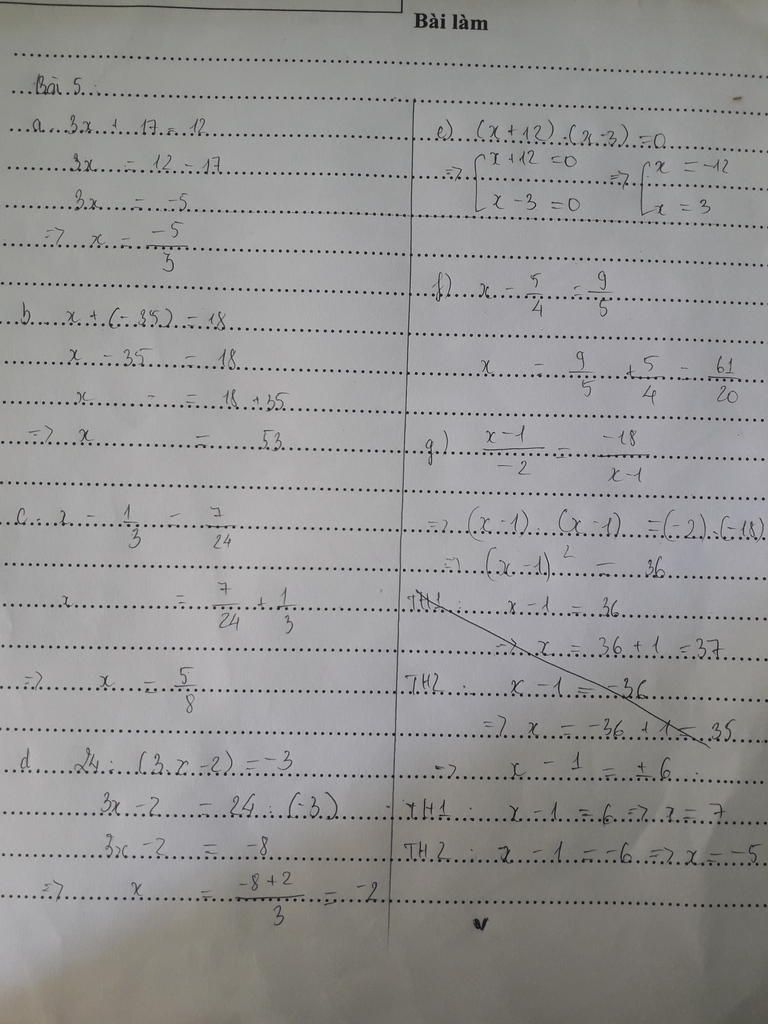 Bài làm
Bài 5:
a. 3x + 17 = 12
3x = 12 - 17
3x = -5
=> x = -5/3
b. x + (-35) = 18
x - 35 = 18
x = 18 + 35
=> x = 53
c. x - 1/3 = 7/24
x = 7/24 + 1/3
=> x = 5/8
d 24 : (3.x - 2) = -3
3x - 2 = 24 : (-3)
3x - 2 = -8
=> x = (-8 + 2)/3 = -2
e) (x + 12) . (x - 3) = 0
=> [ x + 12 = 0 => [ x = -12
x - 3 = 0 x = 3
f) x - 5/4 = 9/5
x = 9/5 + 5/4 = 61/20
g) (x - 1)/(-2) = -18/(x - 1)
=> (x - 1) . (x - 1) = (-2) . (-18)
=> (x - 1)² = 36
TH1 : x - 1 = 36
=> x = 36 + 1 = 37
TH2 : x - 1 = -36
=> x = -36 + 1 = 35
=> x - 1 = ± 6
TH1 : x - 1 = 6 => x = 7
TH2 : x - 1 = -6 => x = -5